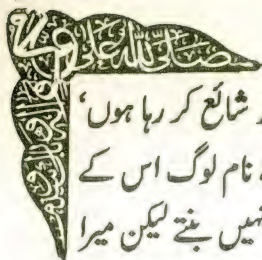 صلی اللہ علی
شائع کر رہا ہوں‘
نام لوگ اس کے
نہیں بنتے لیکن میرا